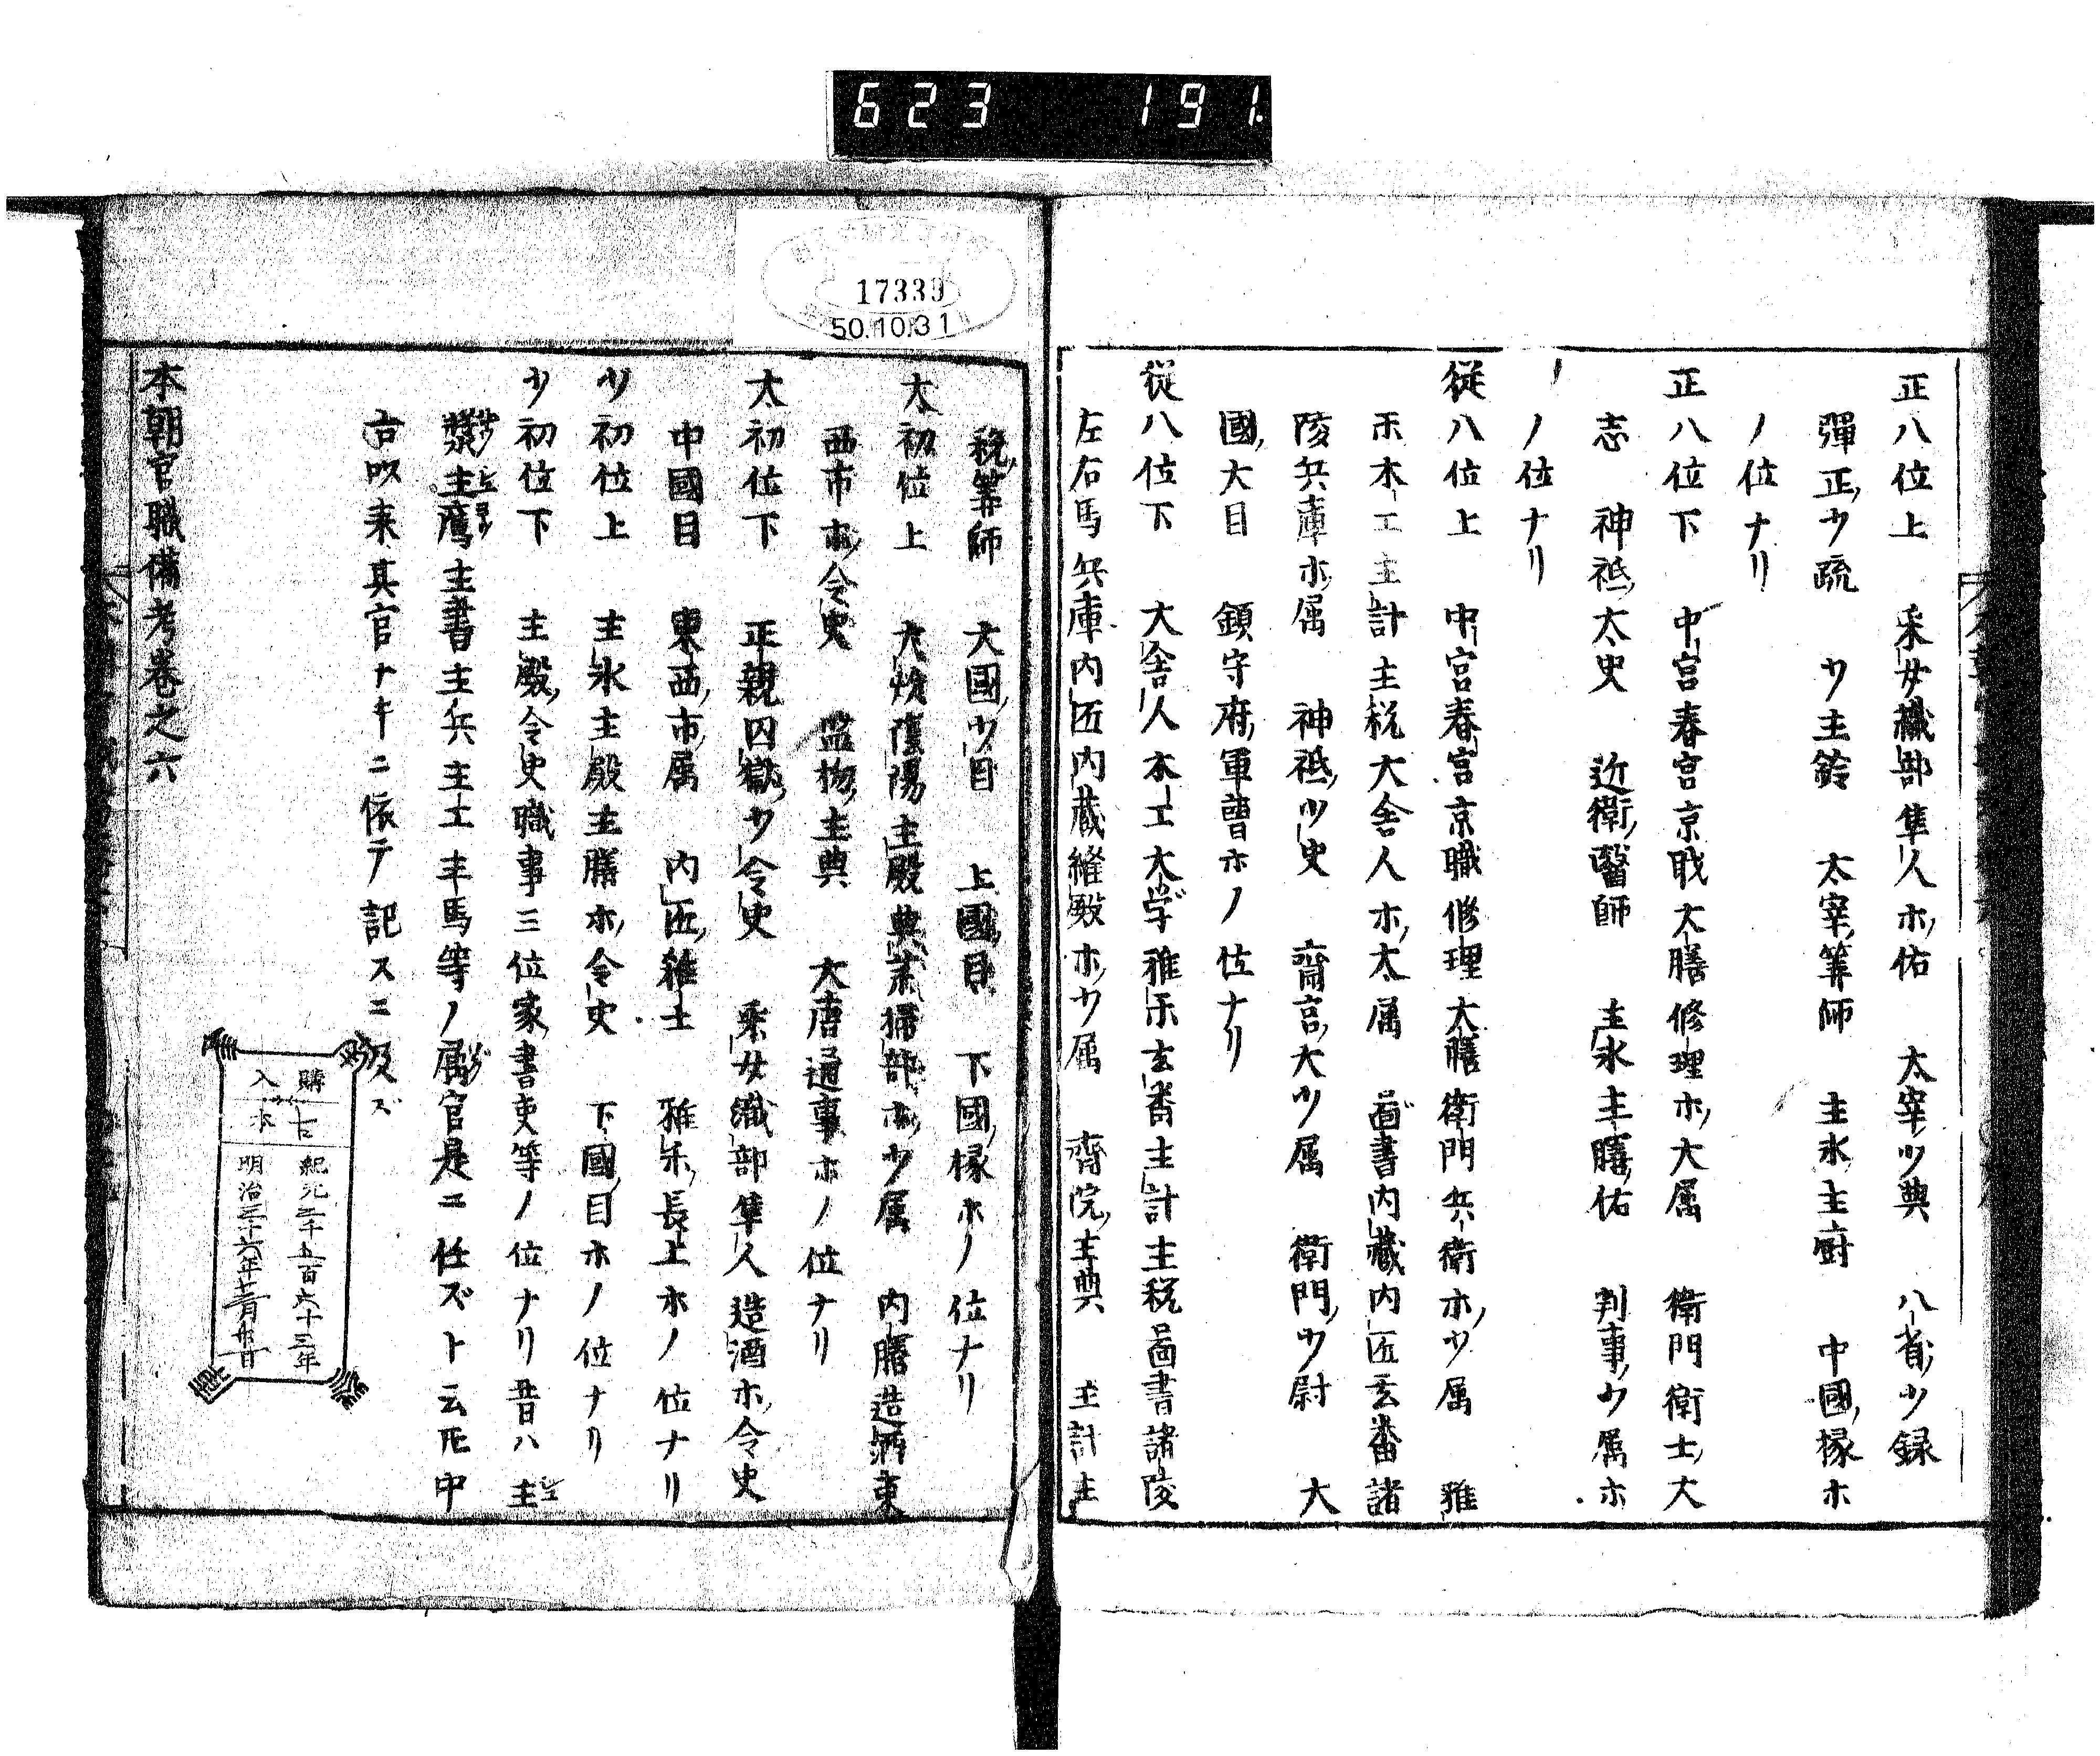 623 191.
正八位上 采女織部隼人ホ佑 太宰少典 八省少録
弾正少疏 少主鈴 太宰筭師 主水主厨 中國掾ホ
ノ位ナリ
正八位下 中宮春宮京職大膳修理ホ大属 衛門衛士大
志 神祇太史 近衛醫師 主水主膳佑 判事少属ホ
ノ位ナリ
従八位上 中宮春宮京職修理大膳衛門兵衛ホ少属 雅
楽木工主計主税大舎人ホ太属 啚書内蔵内匠玄番諸
陵兵庫ホ属 神祇少史 齋宮大少属 衛門少尉 大
國大目 鎮守府軍曹ホノ位ナリ
従八位下 大舎人木工大学雅乐玄番主計主税啚書諸陵
左右馬兵庫内匠内蔵縫殿ホ少属 齋院主典 主計主
税筭師 大國少目 上國目 下國掾ホノ位ナリ
大初位上 大炊陰陽主殿典薬掃部ホ少属 内膳造酒東
西市ホ令史 監物主典 大唐通事ホノ位ナリ
大初位下 正親囚獄少令史 采女織部隼人造酒ホ令史
中國目 東西市属 内匠雑士 雅乐長上ホノ位ナリ
少初位上 主水主殿主膳ホ令史 下國目ホノ位ナリ
少初位下 主殿令史職事三位家書吏等ノ位ナリ昔ハ主
漿主鷹主書主兵主工主馬等ノ属官是ニ任ズト云𪜈中
古以来其官ナキニ依テ記スニ及ズ
本朝官職備考巻之六
17339
50.10.31
購入
古本
紀元二千五百六十三年
明治三十六年